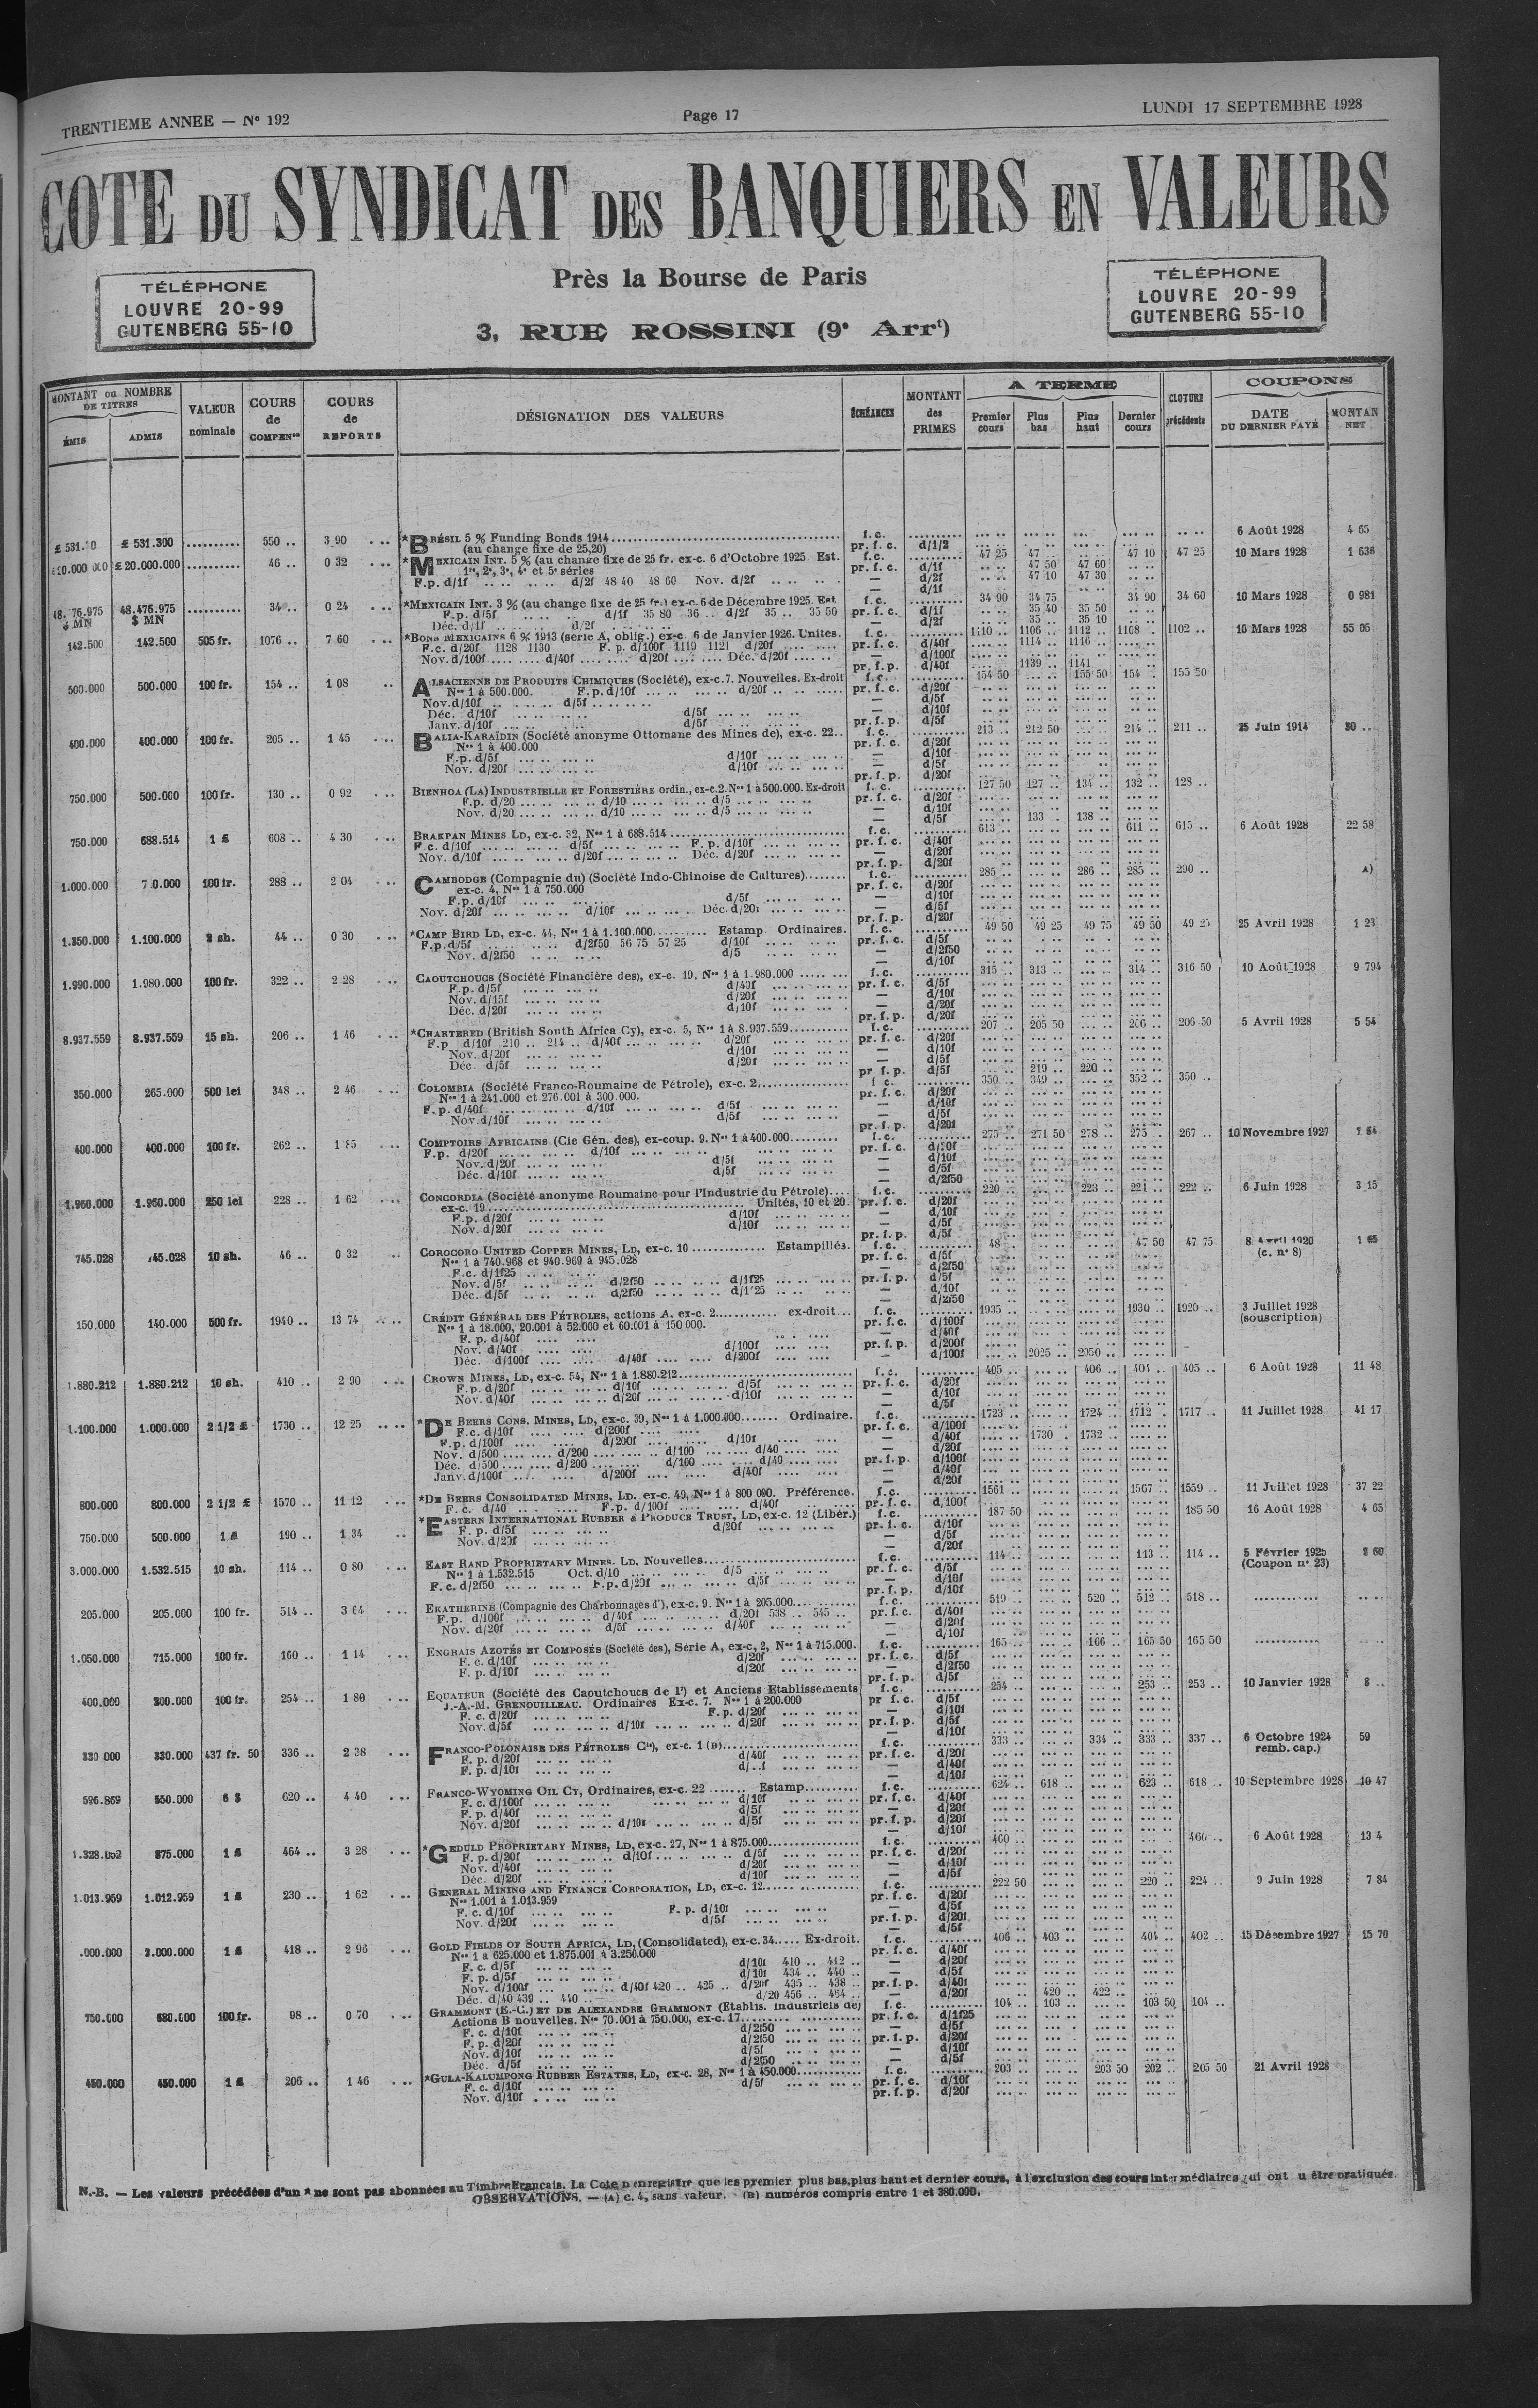 TRENTIEME ANNEE — N° 192
Page 17
LUNDI 17 SEPTEMBRE 1928
COTE DU SYNDICAT DES BANQUIERS EN VALEURS
TÉLÉPHONE
LOUVRE 20-99
GUTENBERG 55-10
Près la Bourse de Paris
3, RUE ROSSINI (9e Arrt)
TÉLÉPHONE
LOUVRE 20-99
GUTENBERG 55-10
MONTANT ou NOMBRE DE TITRES
ÉMIS ADMIS
VALEUR nominale
COURS de COMPENon
COURS de REPORTS
DÉSIGNATION DES VALEURS
ÉCHÉANCES
MONTANT des PRIMES
A TERME
Premier cours Plus bas Plus haut Dernier cours
CLOTURE précédente
COUPONS
DATE DU DERNIER PAYÉ
MONTAN NET
£ 531.300 .......... 550 .. 3 90 *BRÉSIL 5 % Funding Bonds 1914 f. c. 6 Août 1928 4 65
(au change fixe de 25,20) pr. f. c. d/1/2
£ 20.000.000 .......... 46 .. 0 32 *MEXICAIN INT. 5 % (au change fixe de 25 fr. ex-c. 6 d'Octobre 1925 Est. f. c. 47 25 47 .. 47 10 47 25 10 Mars 1928 1 636
1re, 2e, 3e, 4e et 5e séries pr. f. c. d/1f 47 50 47 60
F.p. d/1f .. .. .. .. d/2f 48 40 48 60 Nov. d/2f .. .. .. — d/2f 47 10 47 30
— d/1f
48.476.975 $ MN .......... 34 .. 0 24 *MEXICAIN INT. 3 % (au change fixe de 25 fr.) ex-c. 6 de Décembre 1925. Est f. c. 34 90 34 75 34 90 34 60 10 Mars 1928 0 981
F.p. d/5f .. .. .. .. d/1f 35 80 36 .. d/2f 35 .. 35 50 pr. f. c. d/1f 35 40 35 50
Déc. d/1f .. .. .. .. d/2f .. .. .. — d/2f 35 .. 35 10
142.500 142.500 505 fr. 1076 .. 7 60 *BONS MEXICAINS 6 % 1913 (série A, oblig.) ex-c. 6 de Janvier 1926. Unites. f. c. 1110 .. 1106 .. 1112 .. 1108 . 1102 .. 10 Mars 1928 55 05
F.c. d/20f 1128 1130 F. p. d/100f 1119 1121 d/20f pr. f. c. d/40f 1114 .. 1116 ..
Nov. d/100f .... .... d/40f .... .... d/20f .... .... Déc. d/20f — d/100f
pr. f. p. d/40f 1139 .. 1141
500.000 500.000 100 fr. 154 .. 1 08 ALSACIENNE DE PRODUITS CHIMIQUES (Société), ex-c.7. Nouvelles. Ex-droit f. c. 154 50 155 50 154 . 155 50
Nos 1 à 500.000. F.p. d/10f ... .. ... .. d/20f pr. f. c. d/20f
Nov. d/10f .. .. .. d/5f — d/5f
Déc. d/10f .. .. .. d/5f — d/10f
Janv. d/10f .. .. .. d/5f pr. f. p. d/5f
400.000 400.000 100 fr. 205 .. 1 45 BALIA-KARAÏDIN (Société anonyme Ottomane des Mines de), ex-c. 22.. f. c. 213 .. 212 50 214 .. 211 .. 25 Juin 1914
Nos 1 à 400.000 pr. f. c. d/20f
F.p. d/5f ... .. ... .. d/10f — d/10f
Nov. d/20f ... .. ... .. d/10f — d/5f
pr. f. p. d/20f
750.000 500.000 100 fr. 130 .. 0 92 BIENHOA (LA) INDUSTRIELLE ET FORESTIÈRE ordin., ex-c.2. Nos 1 à 500.000. Ex-droit f. c. 127 50 127 .. 134 .. 132 .. 128 ..
F.p. d/20 ... .. ... .. d/10 ... .. ... .. d/5 pr. f. c. d/20f
Nov. d/20 ... .. ... .. d/10 ... .. ... .. d/5 — d/10f
— d/5f 133 .. 138 ..
750.000 688.514 1 £ 608 .. 4 30 BRAKPAN MINES LD, ex-c. 32, Nos 1 à 688.514 f. c. 613 .. 611 .. 615 .. 6 Août 1928 22 58
F.c. d/10f ... .. ... .. d/5f ... .. ... .. F. p. d/10f pr. f. c. d/40f
Nov. d/10f ... .. ... .. d/20f ... .. ... .. Déc. d/20f — d/20f
pr. f. p. d/20f
1.000.000 100 fr. 288 .. 2 04 CAMBODGE (Compagnie du) (Société Indo-Chinoise de Cultures) f. c. 285 .. 286 .. 285 .. 290 .. A)
ex-c. 4, Nos 1 à 750.000 pr. f. c. d/20f
F.p. d/10f ... .. ... .. d/5f — d/10f
Nov. d/20f ... .. ... .. d/10f ... .. ... .. Déc. d/20f — d/5f
pr. f. p. d/20f
1.350.000 1.100.000 2 sh. 44 .. 0 30 *CAMP BIRD LD, ex-c. 44, Nos 1 à 1.100.000 Estamp Ordinaires. f. c. 49 50 49 25 49 75 49 50 25 Avril 1928 1 23
F.p. d/5f .. .. .. .. d/2f50 56 75 57 25 d/10f pr. f. c. d/5f
Nov. d/2f50 .. .. .. .. d/5 — d/2f50
— d/10f
1.990.000 1.980.000 100 fr. 322 .. 2 28 CAOUTCHOUCS (Société Financière des), ex-c. 19, Nos 1 à 1.980.000 f. c. 315 .. 313 .. 314 .. 316 50 10 Août 1928 9 794
F.p. d/5f ... .. ... .. d/40f pr. f. c. d/5f
Nov. d/15f ... .. ... .. d/20f — d/10f
Déc. d/20f ... .. ... .. d/10f — d/20f
pr. f. p. d/20f
8.937.559 8.937.559 15 sh. 206 .. 1 46 *CHARTERED (British South Africa Cy), ex-c. 5, Nos 1 à 8.937.559 f. c. 207 .. 205 50 206 .. 206 50 5 Avril 1928 5 54
F.p d/10f 210 .. 214 .. d/40f ... .. ... .. d/20f pr. f. c. d/20f
Nov. d/20f ... .. ... .. d/10f — d/10f
Déc. d/5f ... .. ... .. d/20f — d/5f
pr f. p. d/5f 219 .. 220 ..
350.000 265.000 500 lei 348 .. 2 46 COLOMBIA (Société Franco-Roumaine de Pétrole), ex-c. 2 f c. 350 .. 349 .. 352 .. 350 ..
Nos 1 à 241.000 et 276.001 à 300.000. pr. f. c. d/20f
F.p. d/40f ... .. ... .. d/10f ... .. ... .. d/5f — d/10f
Nov. d/10f ... .. ... .. d/5f — d/5f
pr. f. p. d/20f
400.000 400.000 100 fr. 262 .. 1 85 COMPTOIRS AFRICAINS (Cie Gén. des), ex-coup. 9. Nos 1 à 400.000 f. c. 275 .. 271 50 278 .. 275 .. 267 .. 10 Novembre 1927
F.p. d/20f ... .. ... .. d/10f pr. f. c.
Nov. d/20f ... .. ... .. d/5f — d/10f
Déc. d/10f ... .. ... .. d/5f — d/5f
— d/2f50
1.960.000 1.960.000 250 lei 228 .. 1 62 CONCORDIA (Société anonyme Roumaine pour l'Industrie du Pétrole) f. c. 220 .. 223 .. 221 .. 222 .. 6 Juin 1928 3 15
ex-c. 19 Unités, 10 et 20 pr. f. c. d/20f
F.p. d/20f ... .. ... .. d/10f — d/10f
Nov. d/20f ... .. ... .. d/10f — d/5f
pr. f. p. d/5f
745.028 745.028 10 sh. 46 .. 0 32 COROCORO UNITED COPPER MINES, LD, ex-c. 10 Estampillés. f. c. 48 .. 47 50 47 75 8 Avril 1920
Nos 1 à 740.968 et 940.969 à 945.028 pr. f. c. d/5f (c. n° 8)
F.c. d/1f25 — d/2f50
Nov. d/5f .. .. .. .. d/2f50 .. .. .. .. d/1f25 pr. f. p. d/5f
Déc. d/5f .. .. .. .. d/2f50 .. .. .. .. d/1f25 — d/10f
— d/2f50
150.000 140.000 500 fr. 1940 .. 13 74 CRÉDIT GÉNÉRAL DES PÉTROLES, actions A, ex-c. 2 ex-droit f. c. 1935 .. 1930 .. 1920 .. 3 Juillet 1928
Nos 1 à 18.000, 20.001 à 52.000 et 60.001 à 150 000. pr. f. c. d/100f (souscription)
F. p. d/40f — d/40f
Nov. d/40f .... .... d/100f pr. f. p. d/200f
Déc. d/100f .... .... d/40f .... .... d/200f — d/100f 2025 .. 2050 ..
1.880.212 1.880.212 10 sh. 410 .. 2 90 CROWN MINES, LD, ex-c. 54, Nos 1 à 1.880.212 f. c. 405 .. 406 .. 404 .. 405 .. 6 Août 1928 11 48
F.p. d/20f ... .. ... .. d/10f ... .. ... .. d/5f pr. f. c. d/20f
Nov. d/40f ... .. ... .. d/20f ... .. ... .. d/10f — d/10f
— d/5f
1.100.000 1.000.000 2 1/2 £ 1730 .. 12 25 *DE BEERS CONS. MINES, LD, ex-c. 39, Nos 1 à 1.000.000 Ordinaire. f. c. 1723 .. 1724 .. 1712 . 1717 .. 11 Juillet 1928 41 17
F.c. d/10f .... .... d/200f pr. f. c. d/100f
F.p. d/100f .... .... d/200f .... .... d/10f — d/40f 1730 . 1732 ..
Nov. d/500 .... .... d/200 .... .... d/100 .... .... d/40 — d/20f
Déc. d/500 .... .... d/200 .... .... d/100 .... .... d/40 pr. f. p. d/100f
Janv. d/100f .... .... d/200f .... .... d/40f — d/40f
— d/20f
800.000 800.000 2 1/2 £ 1570 .. 11 12 *DE BEERS CONSOLIDATED MINES, LD. ex-c. 49, Nos 1 à 800 000. Préférence. f. c. 1561 .. 1567 .. 1559 .. 11 Juillet 1928 37 22
F. c. d/40 .... .... F.p. d/100f .... .... d/40f pr. f. c. d/100f
750.000 500.000 1 £ 190 .. 1 34 *EASTERN INTERNATIONAL RUBBER & PRODUCE TRUST, LD, ex-c. 12 (Libér.) f. c. 187 50 185 50 16 Août 1928 4 65
F. p. d/5f ... .. ... .. d/20f pr. f. c. d/10f
Nov. d/20f — d/5f
— d/20f
3.000.000 1.532.515 10 sh. 114 .. 0 80 EAST RAND PROPRIETARY MINES. LD. Nouvelles f. c. 114 .. 113 .. 114 .. 5 Février 1925
Nos 1 à 1.532.515 Oct. d/10 ... .. ... .. d/5 pr. f. c. d/5f (Coupon n° 23)
F. c. d/2f50 ... .. ... .. F.p. d/20f ... .. ... .. d/5f — d/10f
pr. f. p. d/10f
205.000 205.000 100 fr. 514 .. 3 64 EKATHERINE (Compagnie des Charbonnages d'), ex-c. 9. Nos 1 à 205.000 f. c. 519 .. 520 .. 512 .. 518 ..
F.p. d/100f ... .. ... .. d/40f ... .. ... .. d/20f 538 .. 545 .. pr. f. c. d/40f
Nov. d/20f ... .. ... .. d/5f ... .. ... .. d/40f — d/20f
— d/10f
1.050.000 715.000 100 fr. 160 .. 1 14 ENGRAIS AZOTÉS ET COMPOSÉS (Société des), Série A, ex-c, 2, Nos 1 à 715.000. f. c. 165 .. 166 .. 165 50 165 50
F. c. d/10f ... .. ... .. d/20f pr. f. c. d/5f
F. p. d/10f ... .. ... .. d/20f — d/2f50
pr. f. p. d/5f
400.000 200.000 100 fr. 254 .. 1 80 EQUATEUR (Société des Caoutchoucs de l') et Anciens Etablissements f. c. 254 .. 253 .. 253 .. 10 Janvier 1928 8 ..
J.-A.-M. GRENOUILLEAU. Ordinaires Ex-c. 7. Nos 1 à 200.000 pr f. c. d/5f
F. c. d/20f ... .. ... .. F.p. d/20f — d/10f
Nov. d/5f ... .. ... .. d/10f ... .. ... .. d/20f pr. f. p. d/5f
— d/10f
330 000 330.000 437 fr. 50 336 .. 2 38 FRANCO-POLONAISE DES PÉTROLES Cie), ex-c. 1 (B) f. c. 333 .. 334 .. 333 .. 337 .. 6 Octobre 1924 59
F. p. d/20f ... .. ... .. d/40f pr. f. c. d/20f remb. cap.)
F. p. d/10f — d/40f
— d/10f
596.869 550.000 6 $ 620 .. 4 40 FRANCO-WYOMING OIL CY, Ordinaires, ex-c. 22 Estamp f. c. 624 .. 618 .. 623 .. 618 .. 10 Septembre 1928 10 47
F. c. d/100f ... .. ... .. d/10f pr. f. c. d/40f
F. p. d/40f ... .. ... .. d/5f — d/20f
Nov. d/20f ... .. ... .. d/10f ... .. ... .. d/5f pr. f. p. d/20f
— d/10f
875.000 1 £ 464 .. 3 28 *GEDULD PROPRIETARY MINES, LD, ex-c. 27, Nos 1 à 875.000 f. c. 460 .. 460 .. 6 Août 1928 13 4
F. p. d/20f ... .. ... .. d/10f ... .. ... .. d/5f pr. f. c. d/20f
Nov. d/40f ... .. ... .. d/20f — d/10f
Déc. d/20f ... .. ... .. d/10f — d/5f
1.013.959 1.012.959 1 £ 230 .. 1 62 GENERAL MINING AND FINANCE CORPORATION, LD, ex-c. 12 f. c. 222 50 220 .. 224 .. 9 Juin 1928 7 84
Nos 1.001 à 1.013.959 pr. f. c. d/20f
F. c. d/10f ... .. ... .. F. p. d/10f — d/5f
Nov. d/20f ... .. ... .. d/5f pr. f. p. d/20f
— d/5f
.000.000 1 £ 418 .. 2 96 GOLD FIELDS OF SOUTH AFRICA, LD, (Consolidated), ex-c. 34 Ex-droit. f. c. 406 .. 403 .. 404 .. 402 .. 15 Décembre 1927 15 70
Nos 1 à 625.000 et 1.875.001 à 3.250.000 pr. f. c. d/40f
F. c. d/5f ... .. ... .. d/10f 410 .. 412 .. — d/20f
F. p. d/5f ... .. ... .. d/10f 434 .. 440 .. — d/5f
Nov. d/100f ... .. ... .. d/40f 420 .. 425 .. d/20f 435 .. 438 .. pr. f. p. d/40f
Déc. d/40 439 .. 440 .. d/20 456 .. 464 .. — d/20f 420 .. 422 ..
750.000 680.000 100 fr. 98 .. 0 70 GRAMMONT (E.-C.) ET DE ALEXANDRE GRAMMONT (Etablis. industriels de) f. c. 104 .. 103 .. 103 50 104 ..
Actions B nouvelles. Nos 70.001 à 750.000, ex-c. 17 pr. f. c. d/1f25
F. c. d/10f ... .. ... .. d/2f50 — d/5f
F. p. d/20f ... .. ... .. d/2f50 pr. f. p. d/20f
Nov. d/10f ... .. ... .. d/5f — d/10f
Déc. d/5f ... .. ... .. d/2f50 — d/5f
450.000 450.000 1 £ 206 .. 1 46 *GULA-KALUMPONG RUBBER ESTATES, LD, ex-c. 28, Nos 1 à 450.000 f. c. 203 .. 203 50 202 .. 205 50 21 Avril 1928
F. c. d/10f ... .. ... .. d/5f pr. f. c. d/10f
Nov. d/10f pr. f. p. d/20f
N.-B. — Les valeurs précédées d'un * ne sont pas abonnées au Timbre Français. La Cote n'enregistre que les premier plus bas, plus haut et dernier cours, à l'exclusion des cours intermédiaires qui ont être pratiqués.
OBSERVATIONS. — (A) c. 4, sans valeur. (B) numéros compris entre 1 et 380.000.